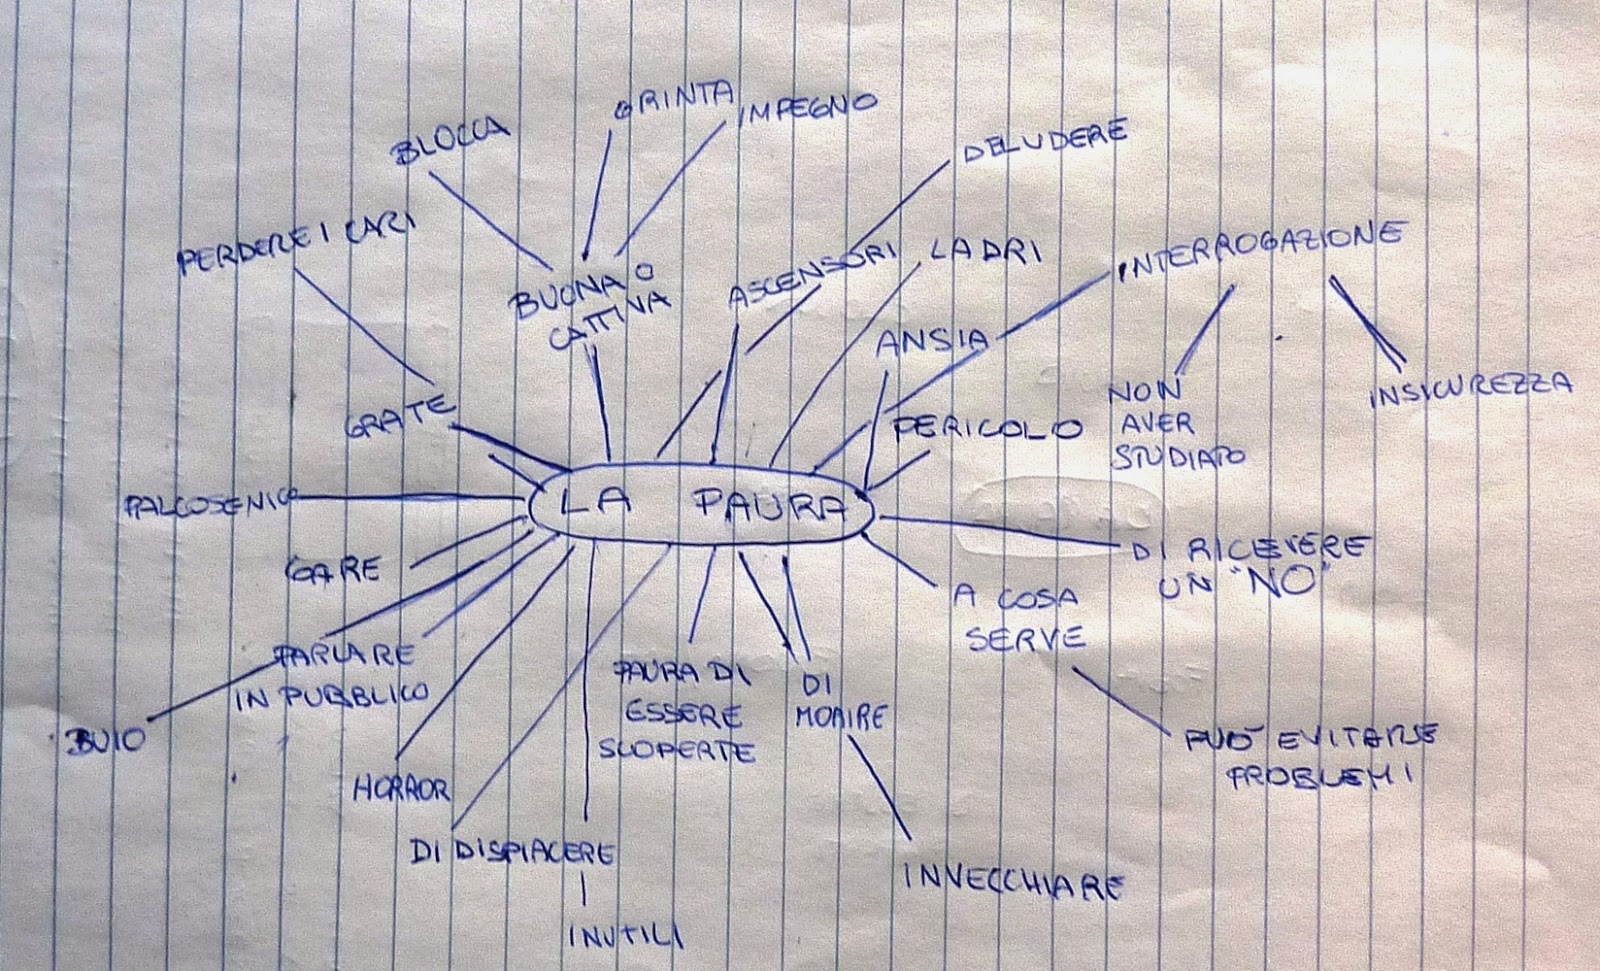 GRINTA
IMPEGNO
BLOCCA
DELUDERE
PERDERE I CARI
BUONA O
CATTIVA
ASCENSORI
LADRI
INTERROGAZIONE
ANSIA
GRATE
PERICOLO
NON
AVER
STUDIATO
INSICUREZZA
PALCOSENICO
LA PAURA
GARE
DI RICEVERE
UN "NO"
A COSA
SERVE
PARLARE
IN PUBBLICO
BUIO
PAURA DI
ESSERE
SCOPERTE
DI
MORIRE
PUO' EVITARE
PROBLEMI
HORROR
DI DISPIACERE
INVECCHIARE
INUTILI